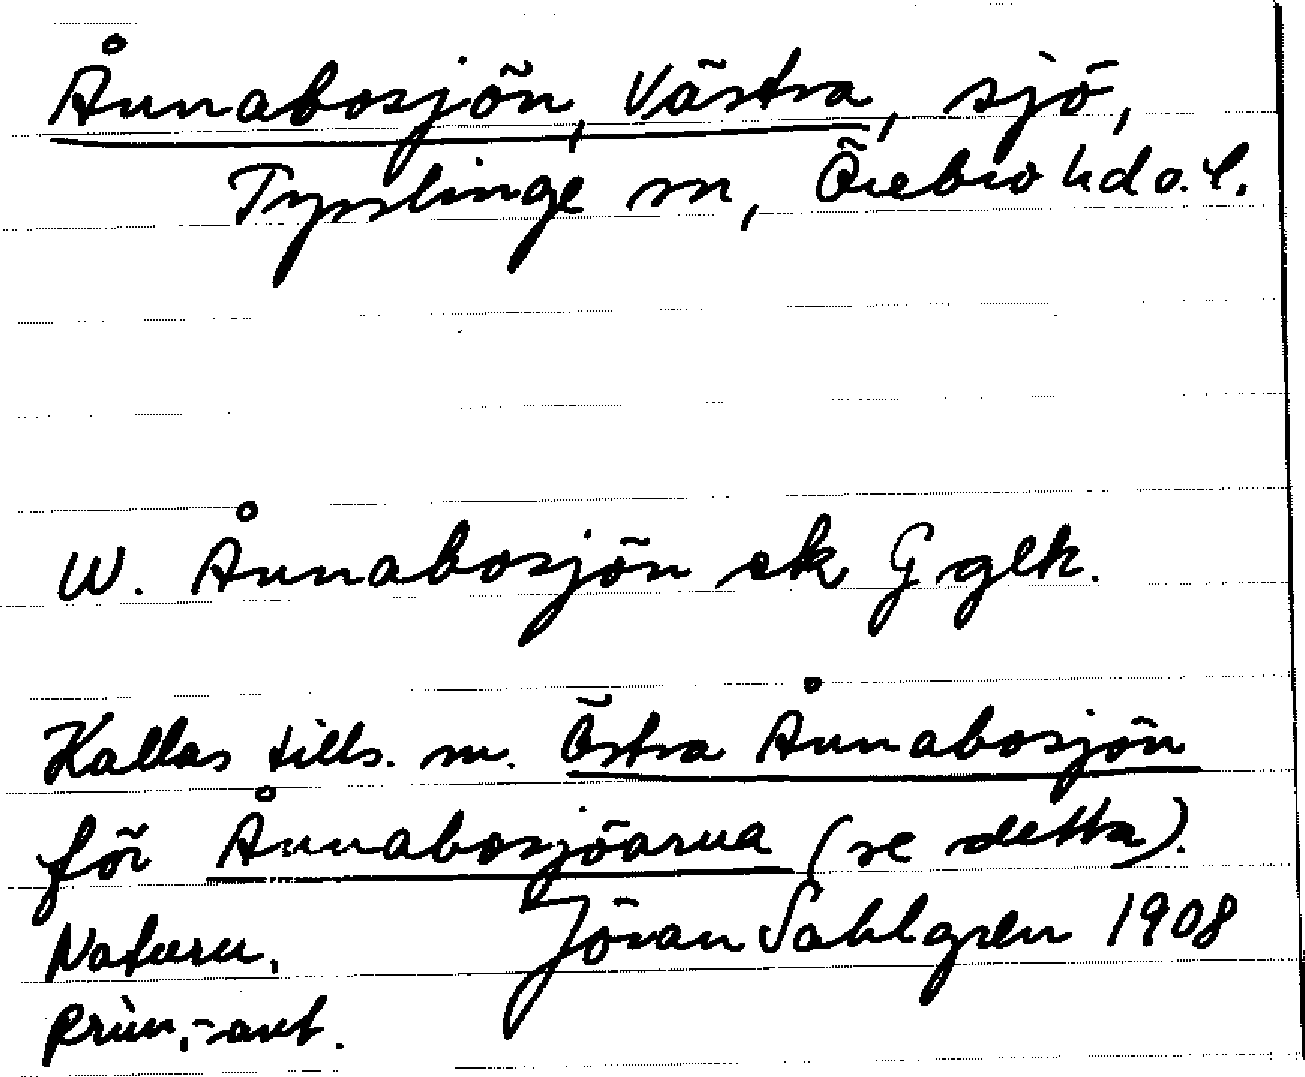 Ånnabosjön, Västra, sjö,
Tysslinge sn, Örebro hd o. l.
W. Ånnabosjön ek G glk.
Kallas tills. m. Östra Ånnabosjön
för Ånnabosjöarna (se detta).
Naturn. Jöran Sahlgren 1908
prim.-ant.